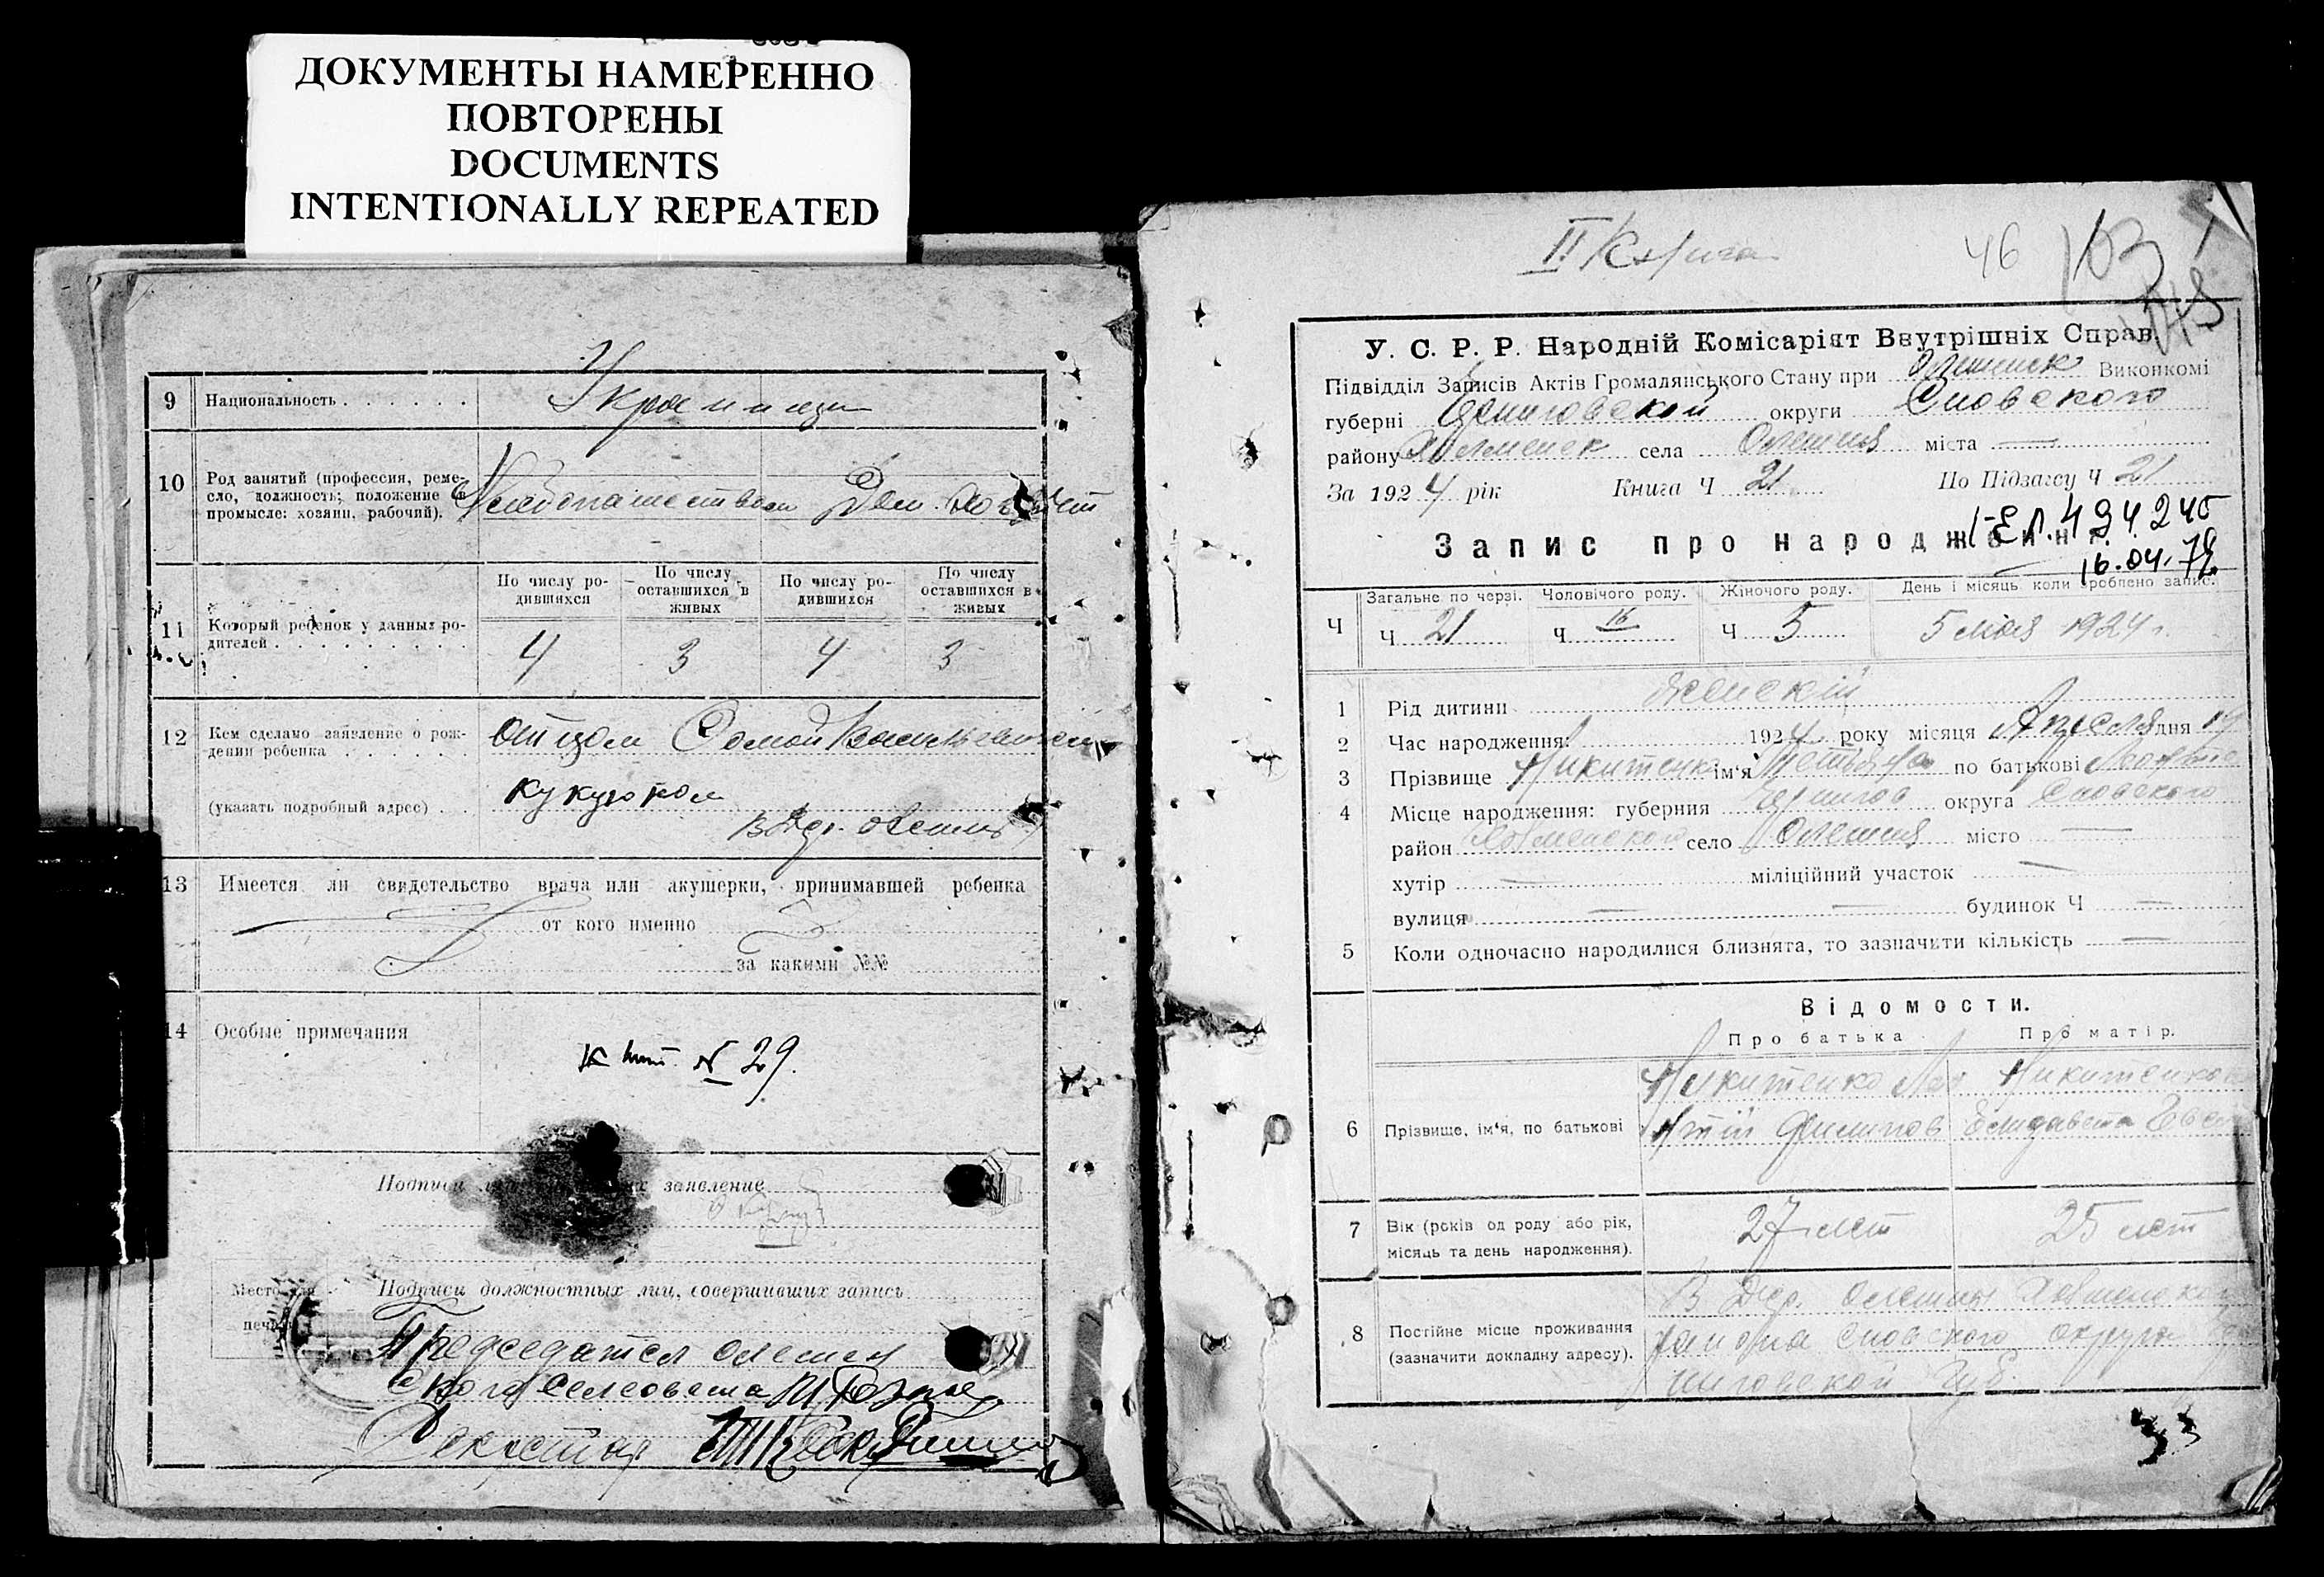 ДОКУМЕНТЫ НАМЕРЕННО
ПОВТОРЕНЫ
DOCUMENTS
INTENTIONALLY REPEATED
9 Национальность Украинцы
10 Род занятий (профессия, реме-
сло, должность; положение в
промысле: хозяин, рабочий).
11 Который ребенок у данных ро-
дителей
По числу ро-
дившихся
По числу
оставшихся в
живых
По числу ро-
дившихся
По числу
оставшихся в
живых
4 3 4 3
12 Кем сделано заявление о рож-
дении ребенка отцом
(указать подробный адрес)
в дер.
13 Имеется ли свидетельство врача или акушерки, принимавшей ребенка
от кого именно
за какими №№
14 Особые примечания
№ 29.
Подписи заявление
Подписи должностных лиц, совершивших запись
Место для
печати
Председател Олешен
ского Сельсовета
Секретарь
II Книга 46 103
У. С. Р. Р. Народній Комісаріят Внутрішніх Справ.
Підвідділ Записів Актів Громадянського Стану при Олешнск Виконкомі
губерні Черниговской округи Сновского
району Холменск села Олешня міста —
За 1924 рік Книга Ч 21 По Підзагсу Ч 21
Запис про народження.
I-ЕЛ. 494245
16.04.79
Ч
Загальне по черзі. Чоловічого роду. Жіночого роду. День і місяць коли зроблено запис.
Ч 21 Ч 16 Ч 5 5 мая 1924 г.
1 Рід дитини Женский
2 Час народження: 1924 року місяця Апреля дня
3 Прізвище Никитенко ім'я Татьяна по батькові
4 Місце народження: губерния Чернигов округа Сновского
район Холменского село Олешня місто —
хутір — міліційний участок —
вулиця — — будинок Ч —
5 Коли одночасно народилися близнята, то зазначити кількість —
Відомости.
Про батька Про матір.
6 Прізвище, ім'я, по батькові
Никитенко Никитенкова
Филипов Елизавета
7 Вік (років од роду або рік,
місяць та день народження).
27 лет 25 лет
8 Постійне місце проживання
(зазначити докладну адресу).
В дер. Олешни Холменского
района Сновского округа Чер
ниговской Губ.
33